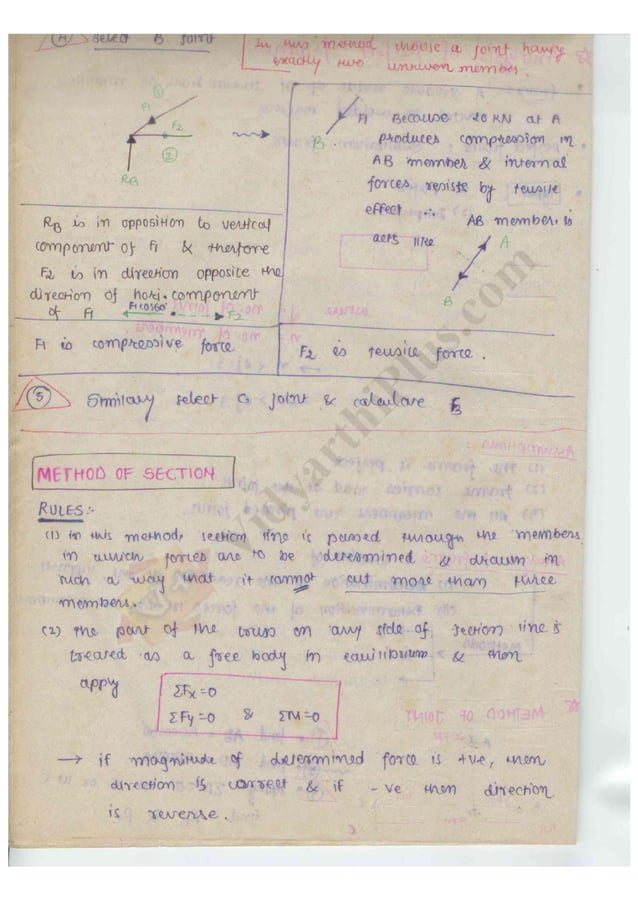 (4) select B joint
In this method choose a joint having
exactly two unknown member.
①
A
F2
②
RB
B
F1 Because 20 KN at A
produces compression in
AB member & internal
forces resists by tensile
effect ∴ AB member is
acts like
A
B
RB is in opposition to vertical
component of F1 & therfore
F2 is in direction opposite the
direction of hori. component
of F1 F1cos60° F2
F1 is compressive force
F2 is tensile force.
(5) Similary select C joint & calculate F3
METHOD OF SECTION
RULES:-
(1) In this method, section line is passed through the members
in which forces are to be determined & drawn in
such a way that it cannot cut more than three
members.
(2) The part of the truss on any side of section line is
treated as a free body in equilibrium & then
apply
ΣFx=0
ΣFy=0 & ΣM=0
→ if magnitude of determined force is +ve, then
direction is correct & if -ve then direction
is reverse.
VidyarthiPlus.com